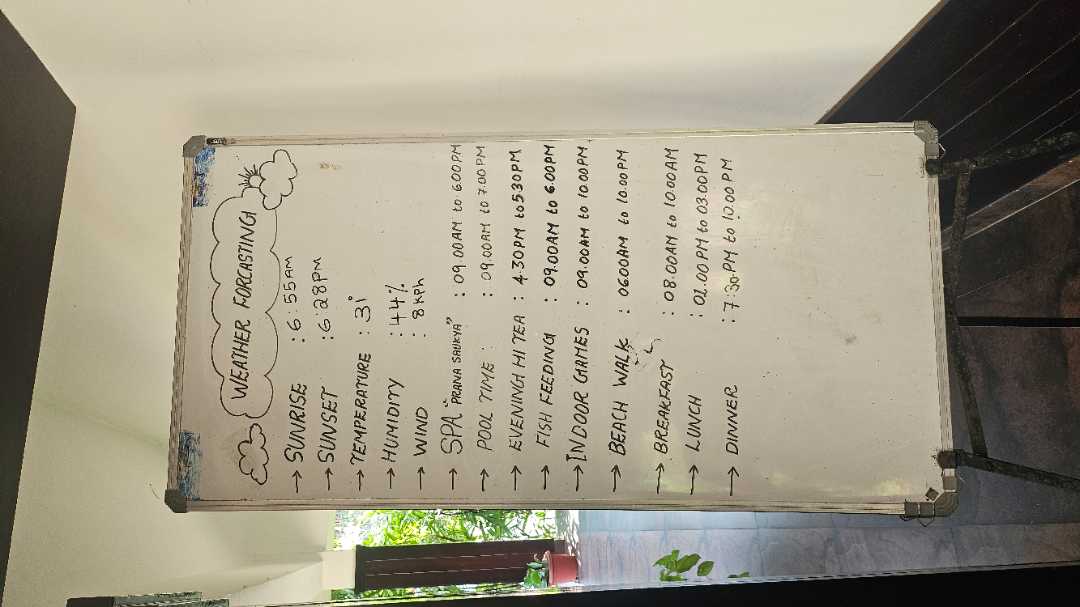 WEATHER FORCASTING
→ SUNRISE : 6:55AM
→ SUNSET : 6:28PM
→ TEMPERATURE : 31°
→ HUMIDITY : 44%
→ WIND : 8 kph
→ SPA "PRANA SAUKYA" : 09.00AM to 6.00PM
→ POOL TIME : 09.00AM to 7.00PM
→ EVENING HI TEA : 4.30PM to 5.30PM
→ FISH FEEDING : 09.00AM to 6.00PM
→ INDOOR GAMES : 09.00AM to 10.00PM
→ BEACH WALK : 06.00AM to 10.00PM
→ BREAKFAST : 08.00AM to 10.00AM
→ LUNCH : 01.00PM to 03.00PM
→ DINNER : 7:30PM to 10.00PM